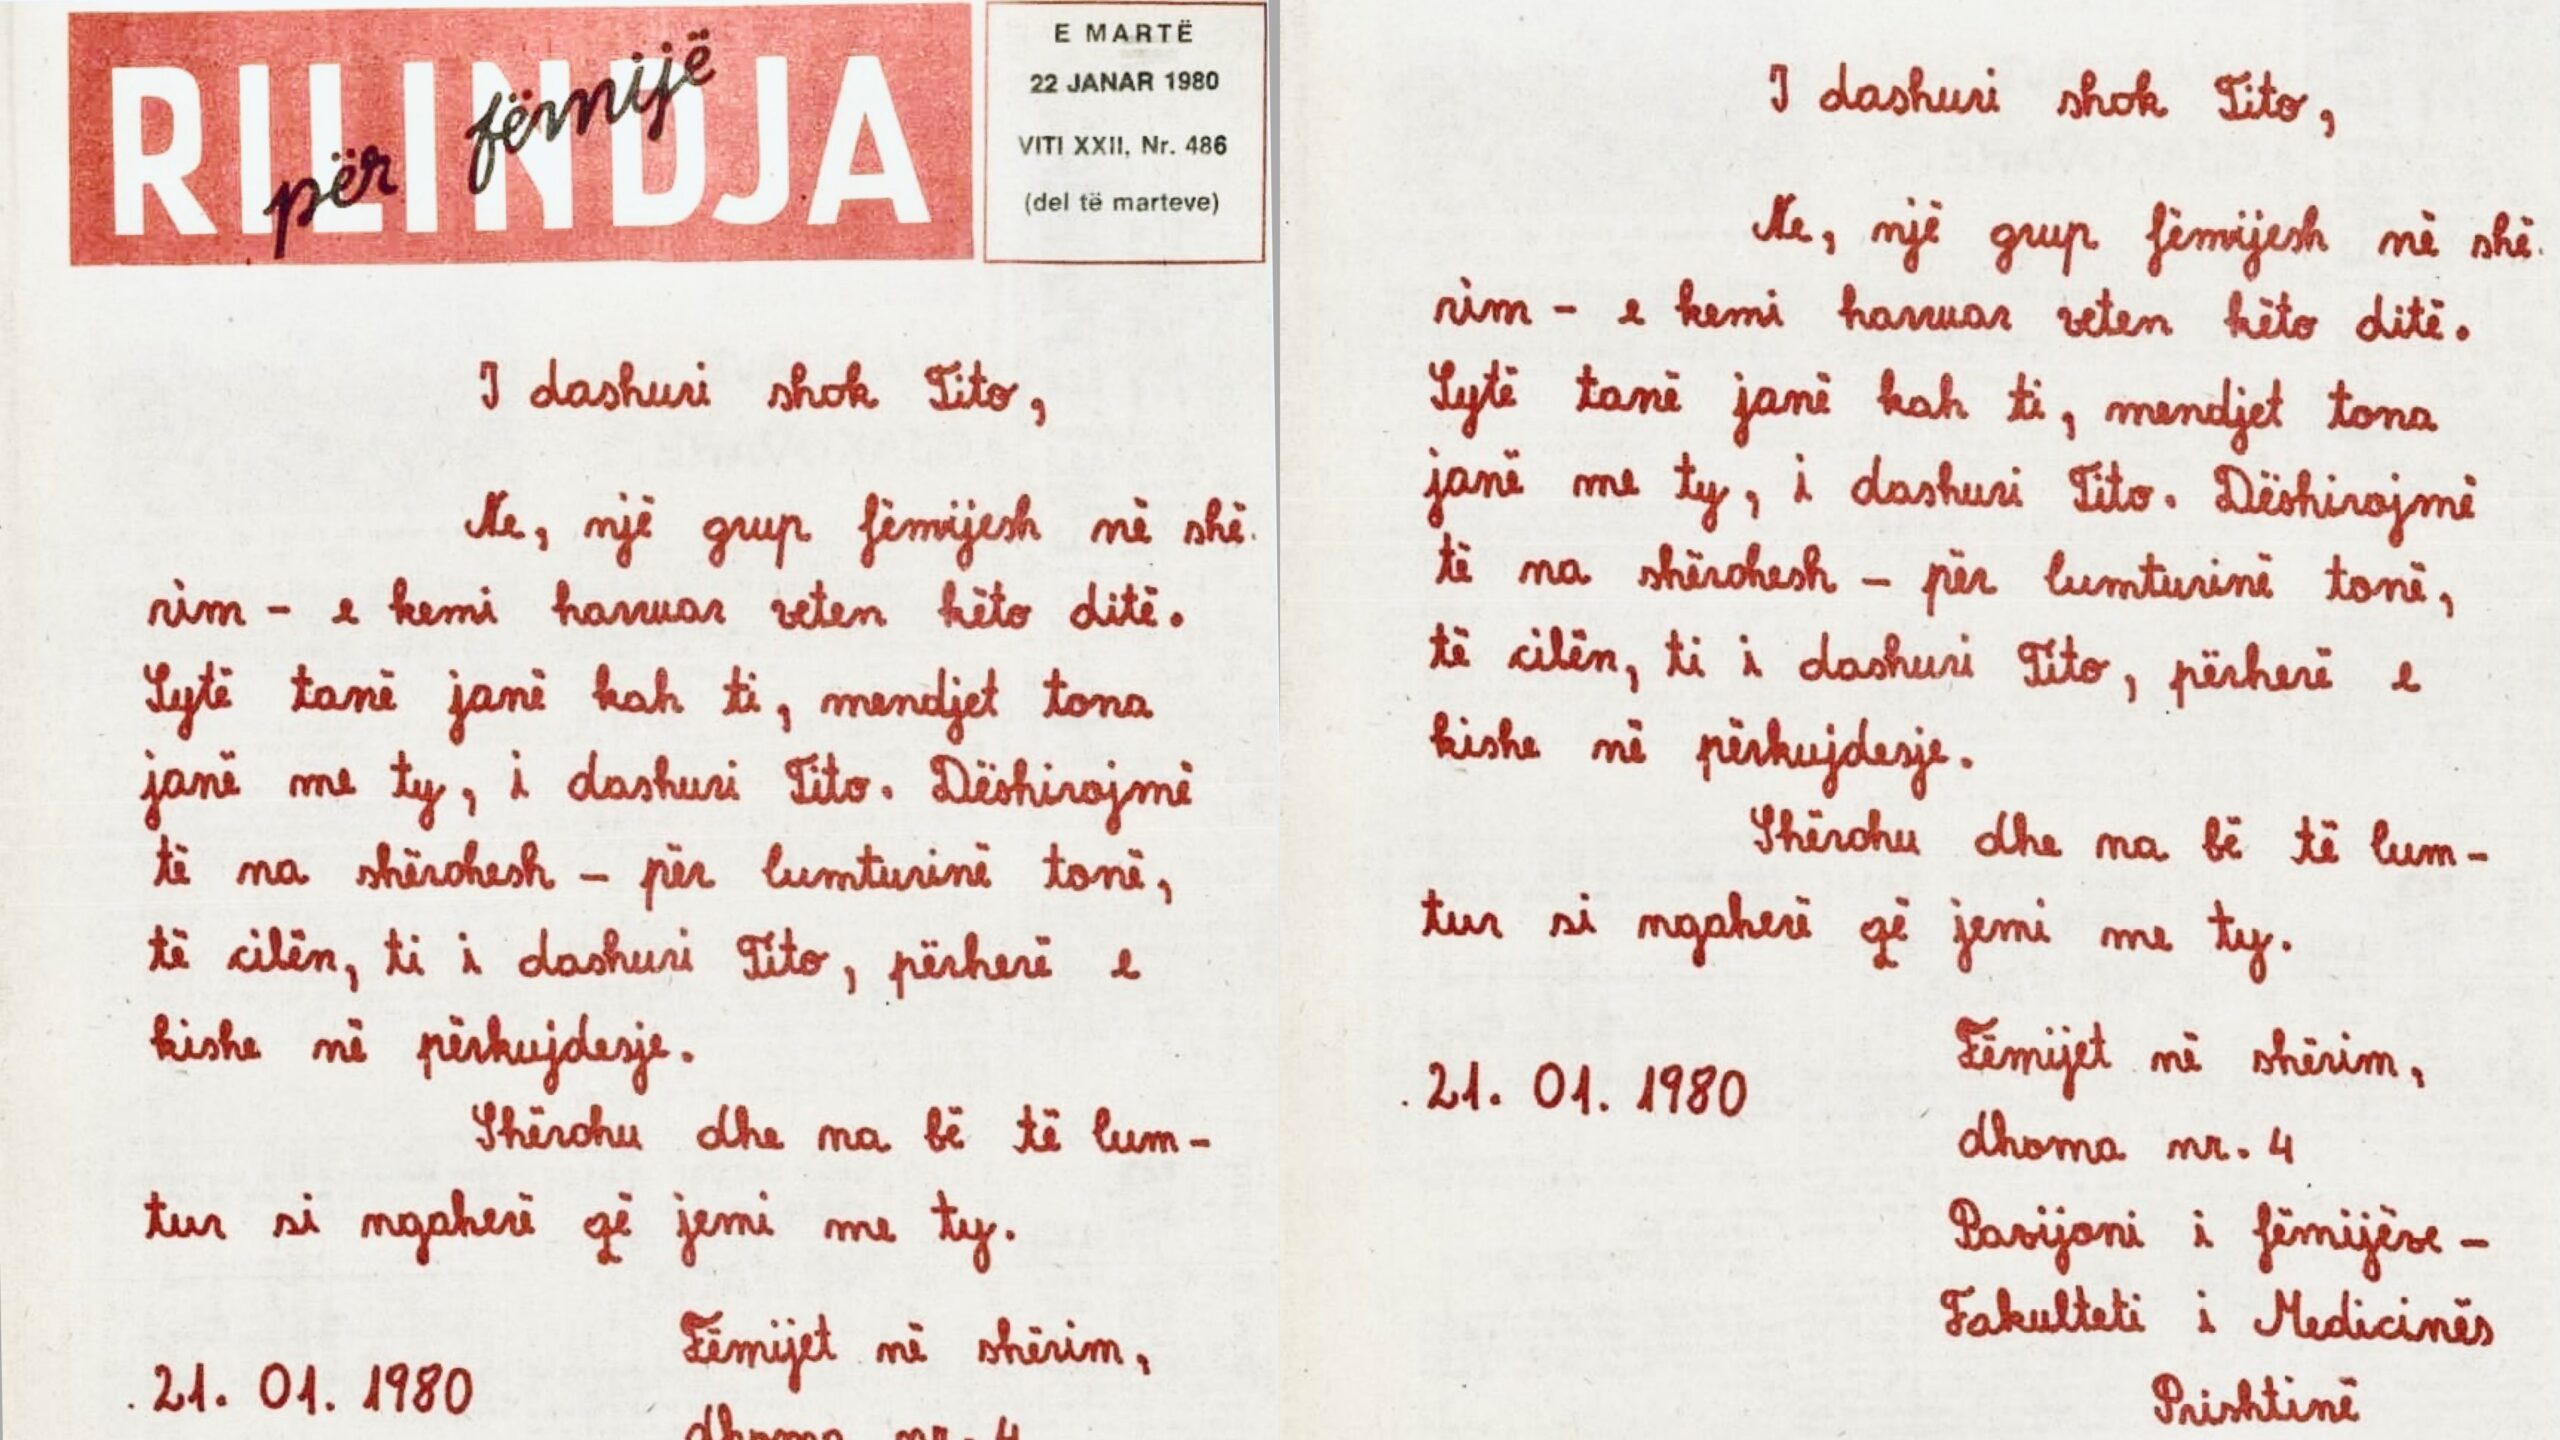 RILINDJA
për fëmijë
E MARTË
22 JANAR 1980
VITI XXII, Nr. 486
(del të marteve)
I dashuri shok Tito,
Ne, një grup fëmijesh në shë-
rim - e kemi harruar veten këto ditë.
Sytë tanë janë kah ti, mendjet tona
janë me ty, i dashuri Tito. Dëshirojmë
të na shërohesh - për lumturinë tonë,
të cilën, ti i dashuri Tito, përherë e
kishe në përkujdesje.
Shërohu dhe na bë të lum-
tur si ngaherë që jemi me ty.
Fëmijet në shërim,
21. 01. 1980
dhoma nr. 4
I dashuri shok Tito,
Ne, një grup fëmijesh në shë-
rim - e kemi harruar veten këto ditë.
Sytë tanë janë kah ti, mendjet tona
janë me ty, i dashuri Tito. Dëshirojmë
të na shërohesh - për lumturinë tonë,
të cilën, ti i dashuri Tito, përherë e
kishe në përkujdesje.
Shërohu dhe na bë të lum-
tur si ngaherë që jemi me ty.
Fëmijet në shërim,
21. 01. 1980
dhoma nr. 4
Pavijoni i fëmijëve -
Fakulteti i Medicinës
Prishtinë